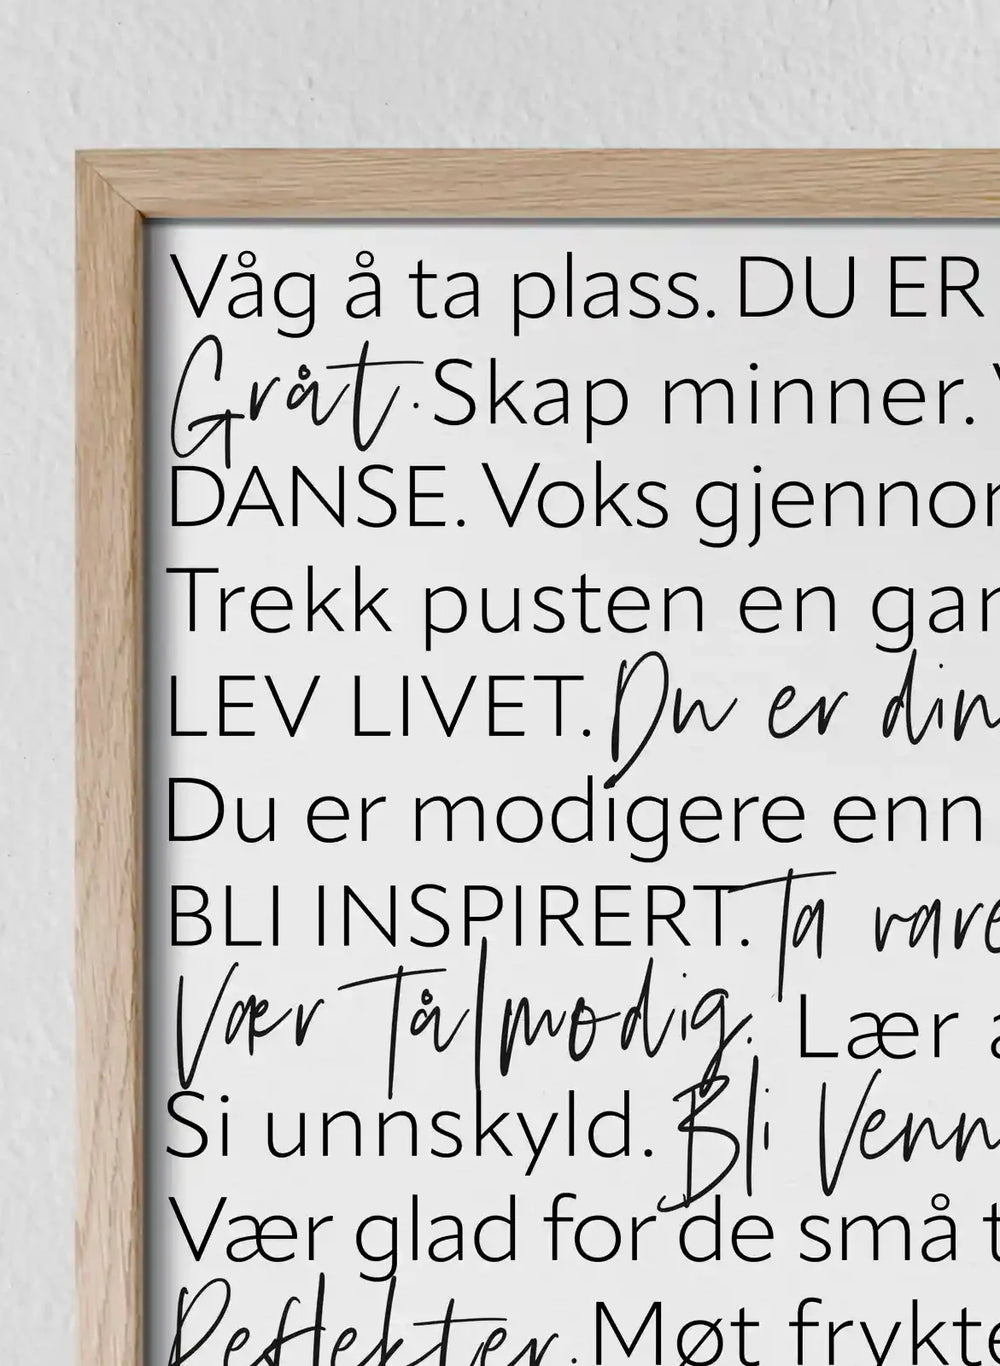 Våg å ta plass. DU ER
Gråt. Skap minner. V
DANSE. Voks gjennom
Trekk pusten en gan
LEV LIVET. Du er din
Du er modigere enn
BLI INSPIRERT. Ta vare
Vær tålmodig. Lær a
Si unnskyld. Bli Venn
Vær glad for de små t
Reflekter. Møt frykte